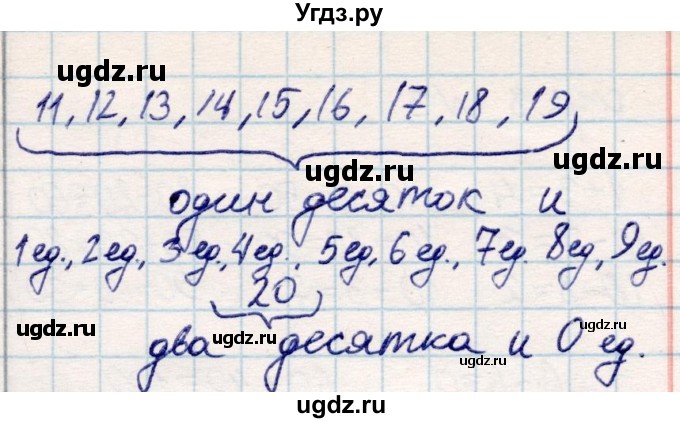 Угдз.ру
ugdz.ru
ugdz.ru
11, 12, 13, 14, 15, 16, 17, 18, 19
один десяток и
1 ед., 2 ед., 3 ед., 4 ед., 5 ед., 6 ед., 7 ед. 8 ед., 9 ед.
20
ugdz.ru
ugdz.ru
ugdz.ru
два десятка и 0 ед.
ugdz.ru